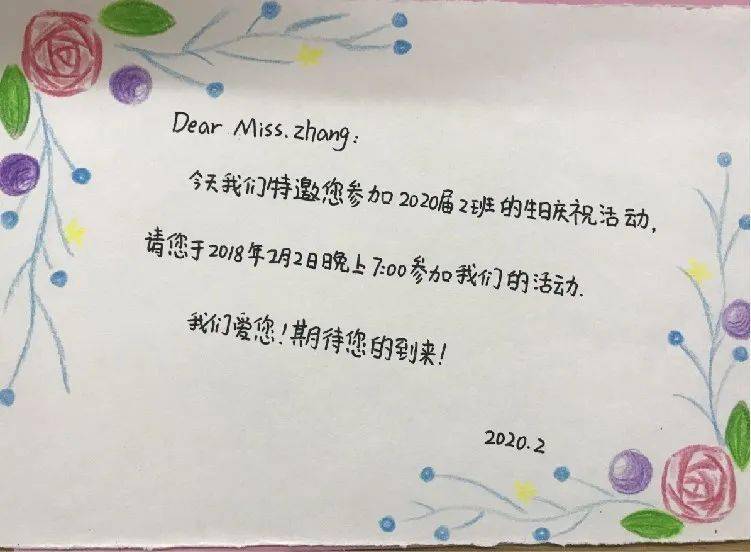 Dear Miss.zhang:
今天我们特邀您参加2020届2班的生日庆祝活动,
请您于2018年2月2日晚上7:00参加我们的活动.
我们爱您!期待您的到来!
2020.2